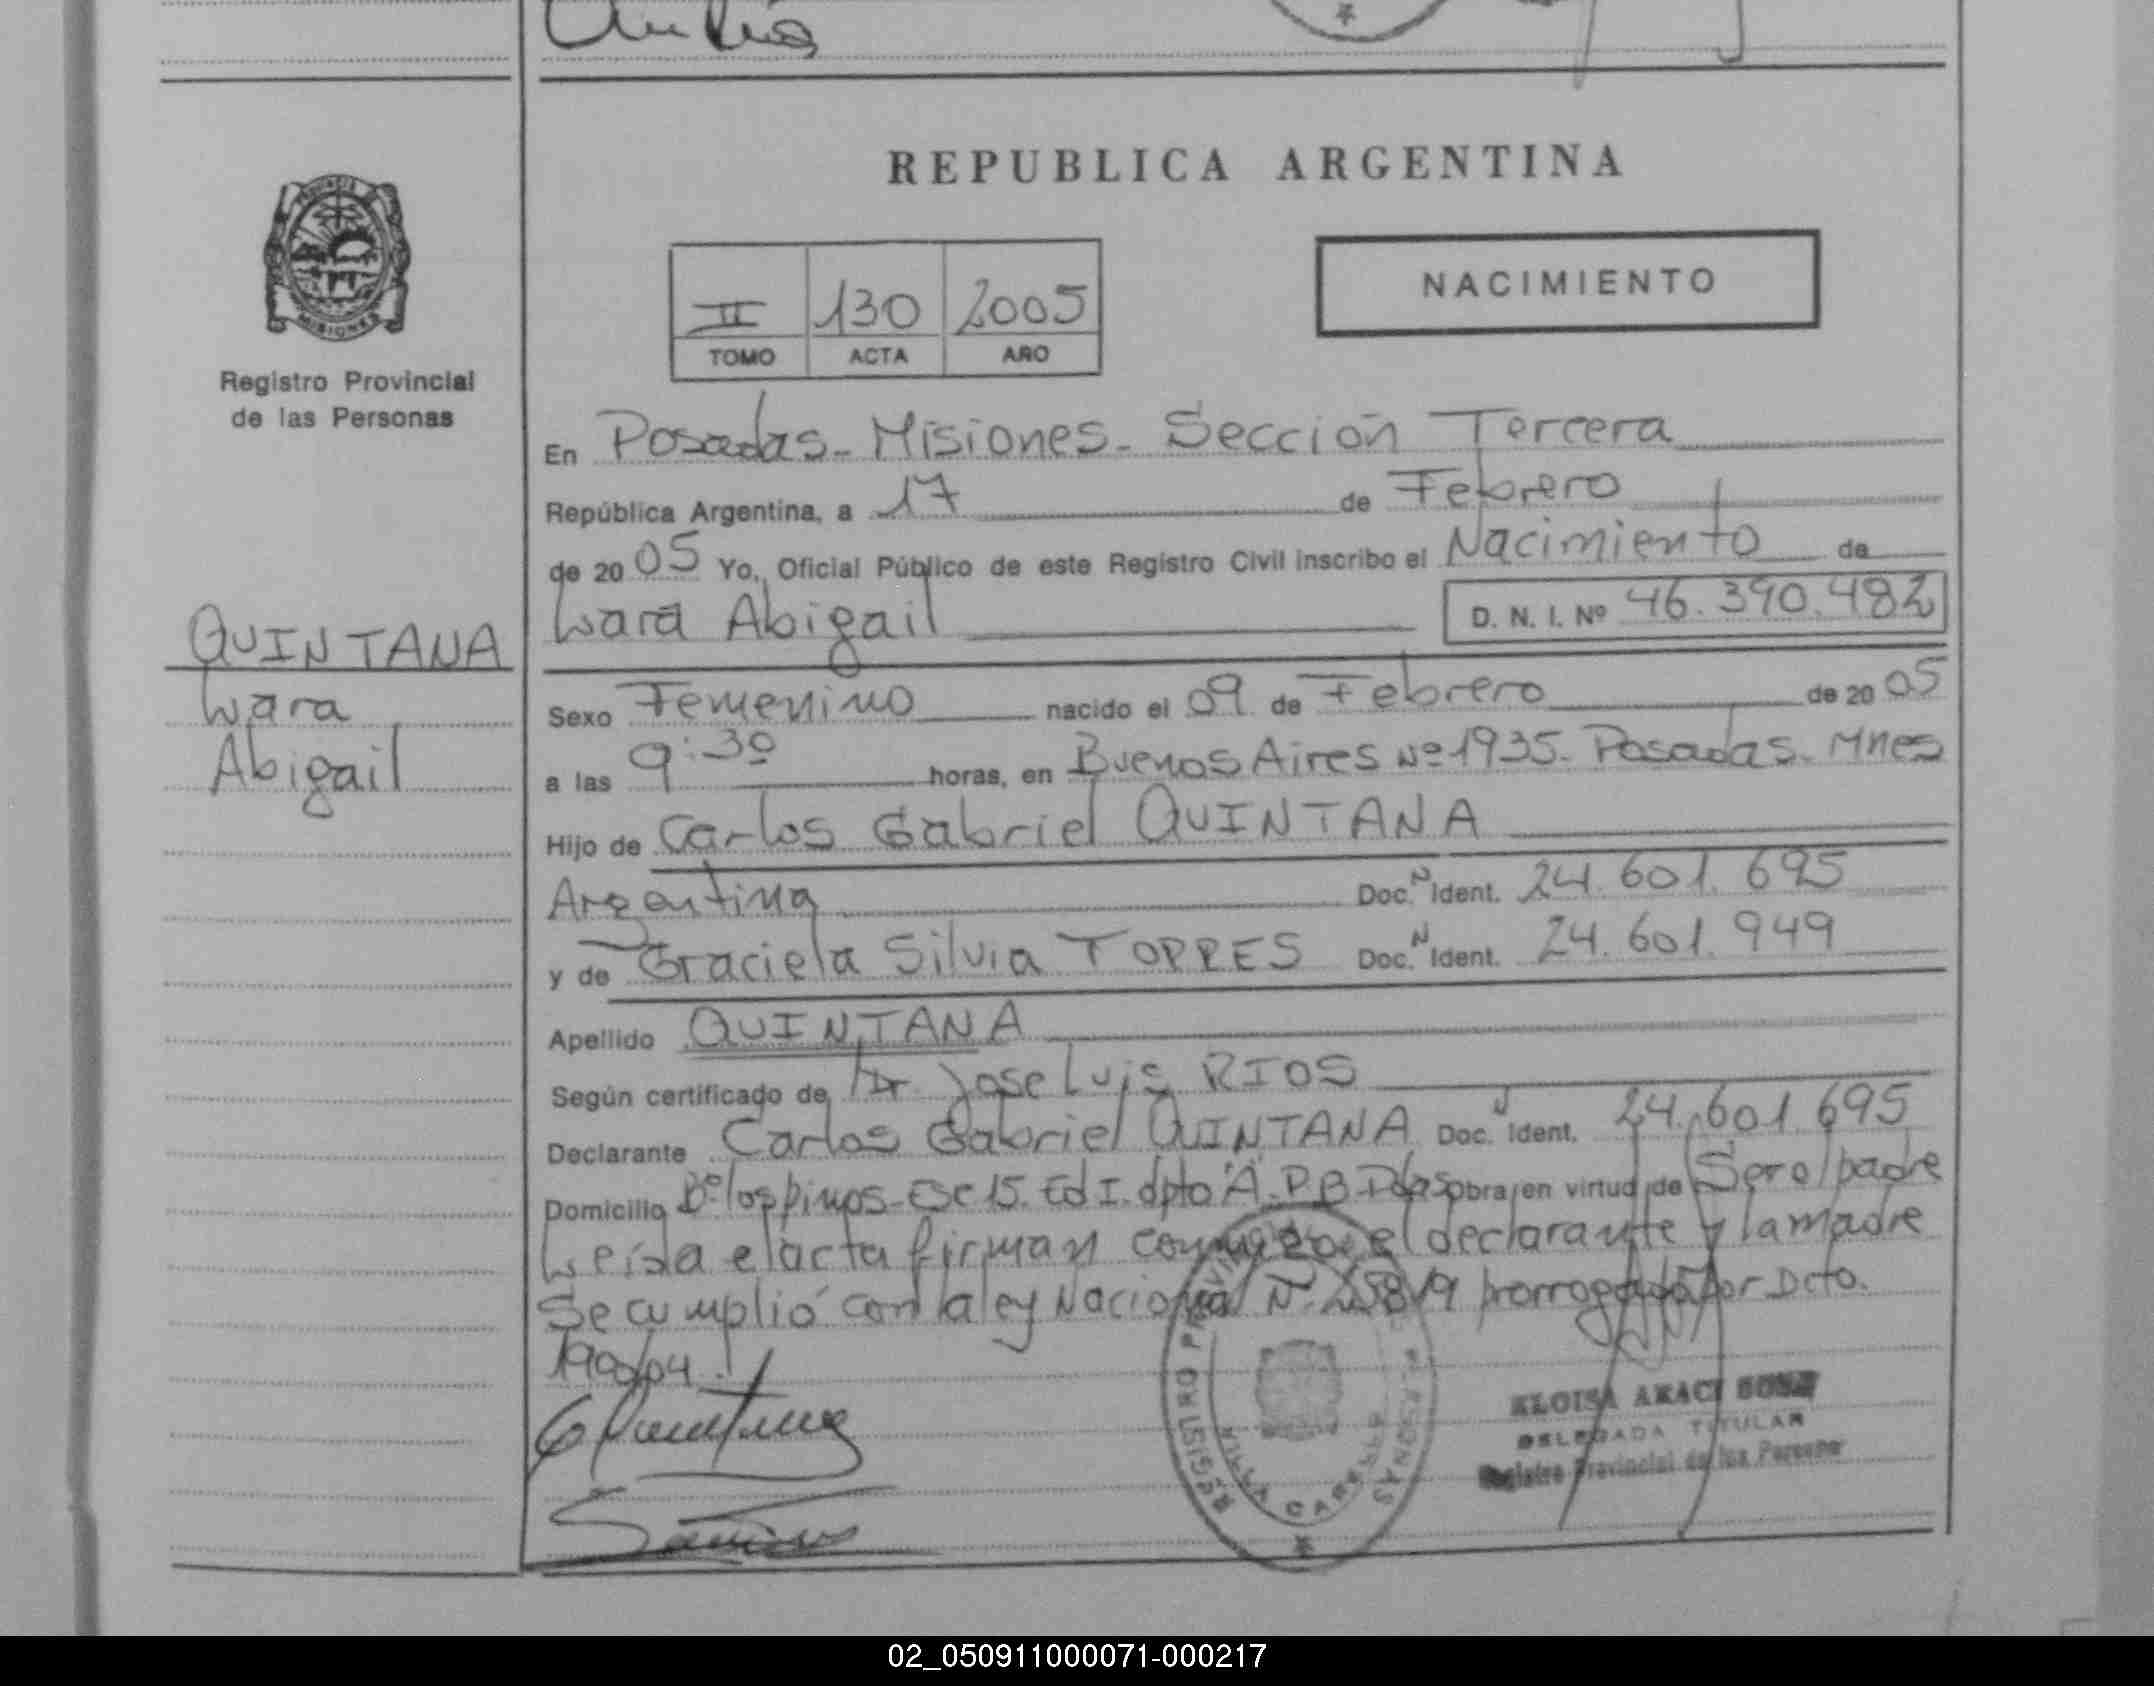 REPUBLICA ARGENTINA
NACIMIENTO
II 130 2005
TOMO ACTA AÑO
MISIONES
Registro Provincial
de las Personas
En Posadas - Misiones - Sección Tercera
República Argentina, a 17 de Febrero
de 2005 Yo, Oficial Público de este Registro Civil inscribo el Nacimiento de
Lara Abigail D. N. I. Nº 46.390.482
QUINTANA
Lara
Abigail
Sexo Femenino nacido el 09 de Febrero de 2005
a las 9:30 horas, en Buenos Aires Nº 1935 - Posadas - Mnes
Hijo de Carlos Gabriel QUINTANA
Argentina Doc. N Ident. 24.601.695
y de Graciela Silvia TORRES Doc. N Ident. 24.601.949
Apellido QUINTANA
Según certificado de Dr Jose Luis RIOS
Declarante Carlos Gabriel QUINTANA Doc. Ident. 24.601.695
Domicilio Bº los pinos - Esc 15. Ed I. dpto "A". P.B. Pdas obra en virtud de Ser el padre
Leída el acta firman conmigo el declarante y la madre
Se cumplió con la ley Nacional Nº prorrogada por Dcto.
REGISTRO PROVINCIAL PERSONAS
VILLA CABELLO
ELOISA ARACI SOSA
DELEGADA TITULAR
Registro Provincial de las Personas
02_050911000071-000217